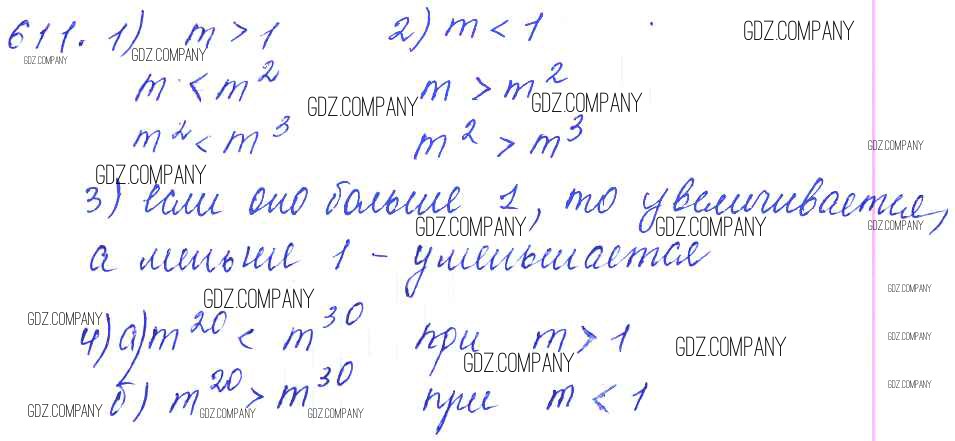 611. 1) m > 1 2) m < 1 GDZ.COMPANY
GDZ.COMPANY GDZ.COMPANY
m < m² m > m²
GDZ.COMPANY GDZ.COMPANY
m² < m³ m² > m³
GDZ.COMPANY
GDZ.COMPANY
3) если оно больше 1, то увеличивается,
GDZ.COMPANY GDZ.COMPANY GDZ.COMPANY
а меньше 1 - уменьшается
GDZ.COMPANY
GDZ.COMPANY
GDZ.COMPANY
4) а) m²⁰ < m³⁰ при m > 1
GDZ.COMPANY
GDZ.COMPANY GDZ.COMPANY
GDZ.COMPANY
б) m²⁰ > m³⁰ при m < 1
GDZ.COMPANY GDZ.COMPANY GDZ.COMPANY